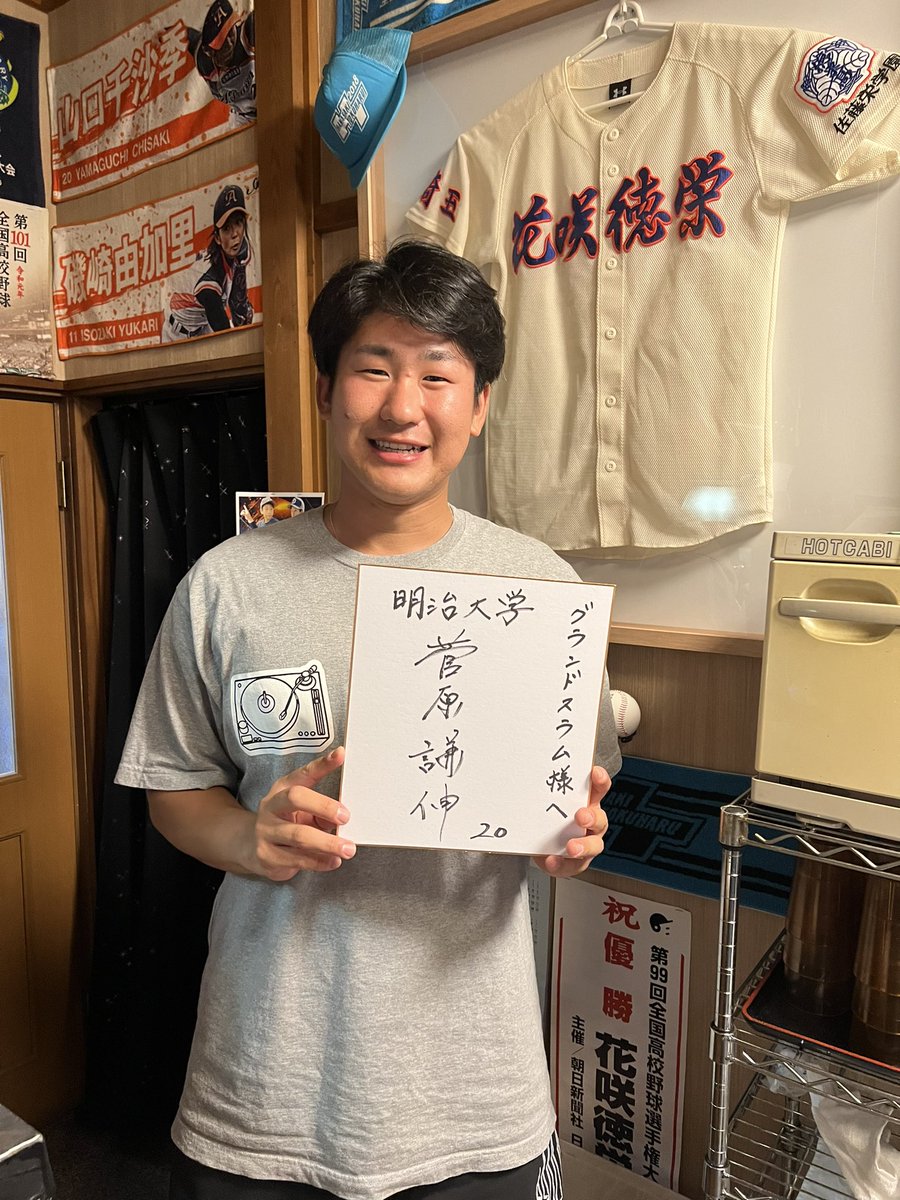 山口千沙季
20 YAMAGUCHI CHISAKI
磯崎由加里
11 ISOZAKI YUKARI
大会
第101回
令和元年
全国高校野球
埼玉
花咲徳栄
佐藤栄学園
HOTCABI
グランドスラム様へ
明治大学
菅原謙伸
20
祝優勝
第99回全国高校野球選手権大
花咲徳栄
主催/朝日新聞社 日